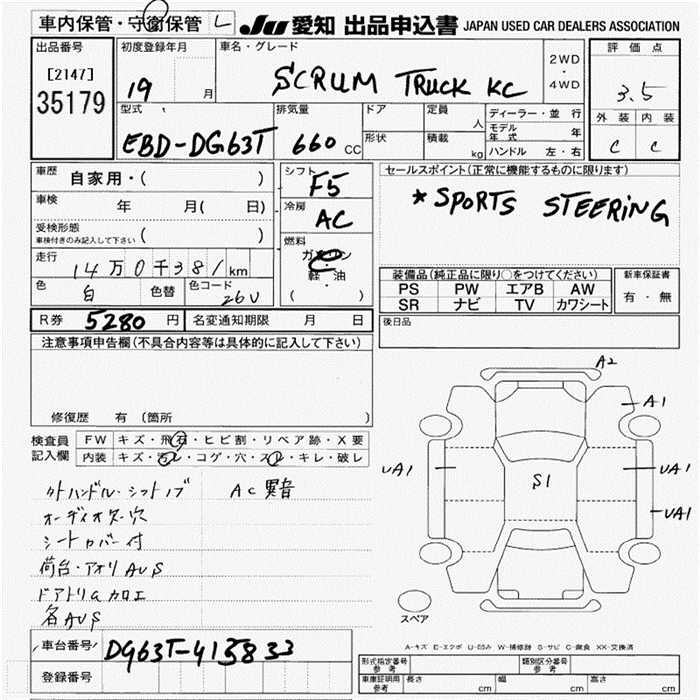 車内保管・守衛保管 L JU 愛知 出品申込書 JAPAN USED CAR DEALERS ASSOCIATION
出品番号 初度登録年月 車名・グレード 2WD・4WD 評価点
[2147]
35179
19 月 SCRUM TRUCK KC 3.5
型式 排気量 ドア 定員 人 ディーラー・並行 外装 内装
形状 積載 kg モデル年式 年
EBD-DG63T 660 CC ハンドル 左・右 C C
車歴 自家用・( ) シフト F5 セールスポイント(正常に機能するものに限ります)
車検 年 月( 日) 冷房 AC *SPORTS STEERING
受検形態 ( )
車検付きのみ記入して下さい
燃料 ガソリン
走行 14万0千381km 軽・油
装備品(純正品に限り○をつけてください) 新車保証書
色 白 色替 色コード 26U ( ・ )
PS PW エアB AW 有・無
SR ナビ TV カワシート
R券 5280円 名変通知期限 月 日 後日品
注意事項申告欄(不具合内容等は具体的に記入して下さい)
修復歴 有 (箇所 )
検査員記入欄 FW キズ・飛石・ヒビ割・リペア跡・X要
内装 キズ・汚レ・コゲ・穴・スレ・キレ・破レ
外ハンドル・シフトノブ AC異音
オーディオ欠・穴
シートカバー付
荷台・アオリAUS
ドアトリムカロエ
各AUS
A2
A1
UA1 S1 UA1
UA1
スペア
A-キズ E-エクボ U-凹み W-補修跡 S-サビ C-腐食 XX-交換済
車台番号 DG63T-415833
登録番号
形式指定番号 参考 類別区分番号 参考
車庫証明用 参考 長さ cm 幅 cm 高さ cm